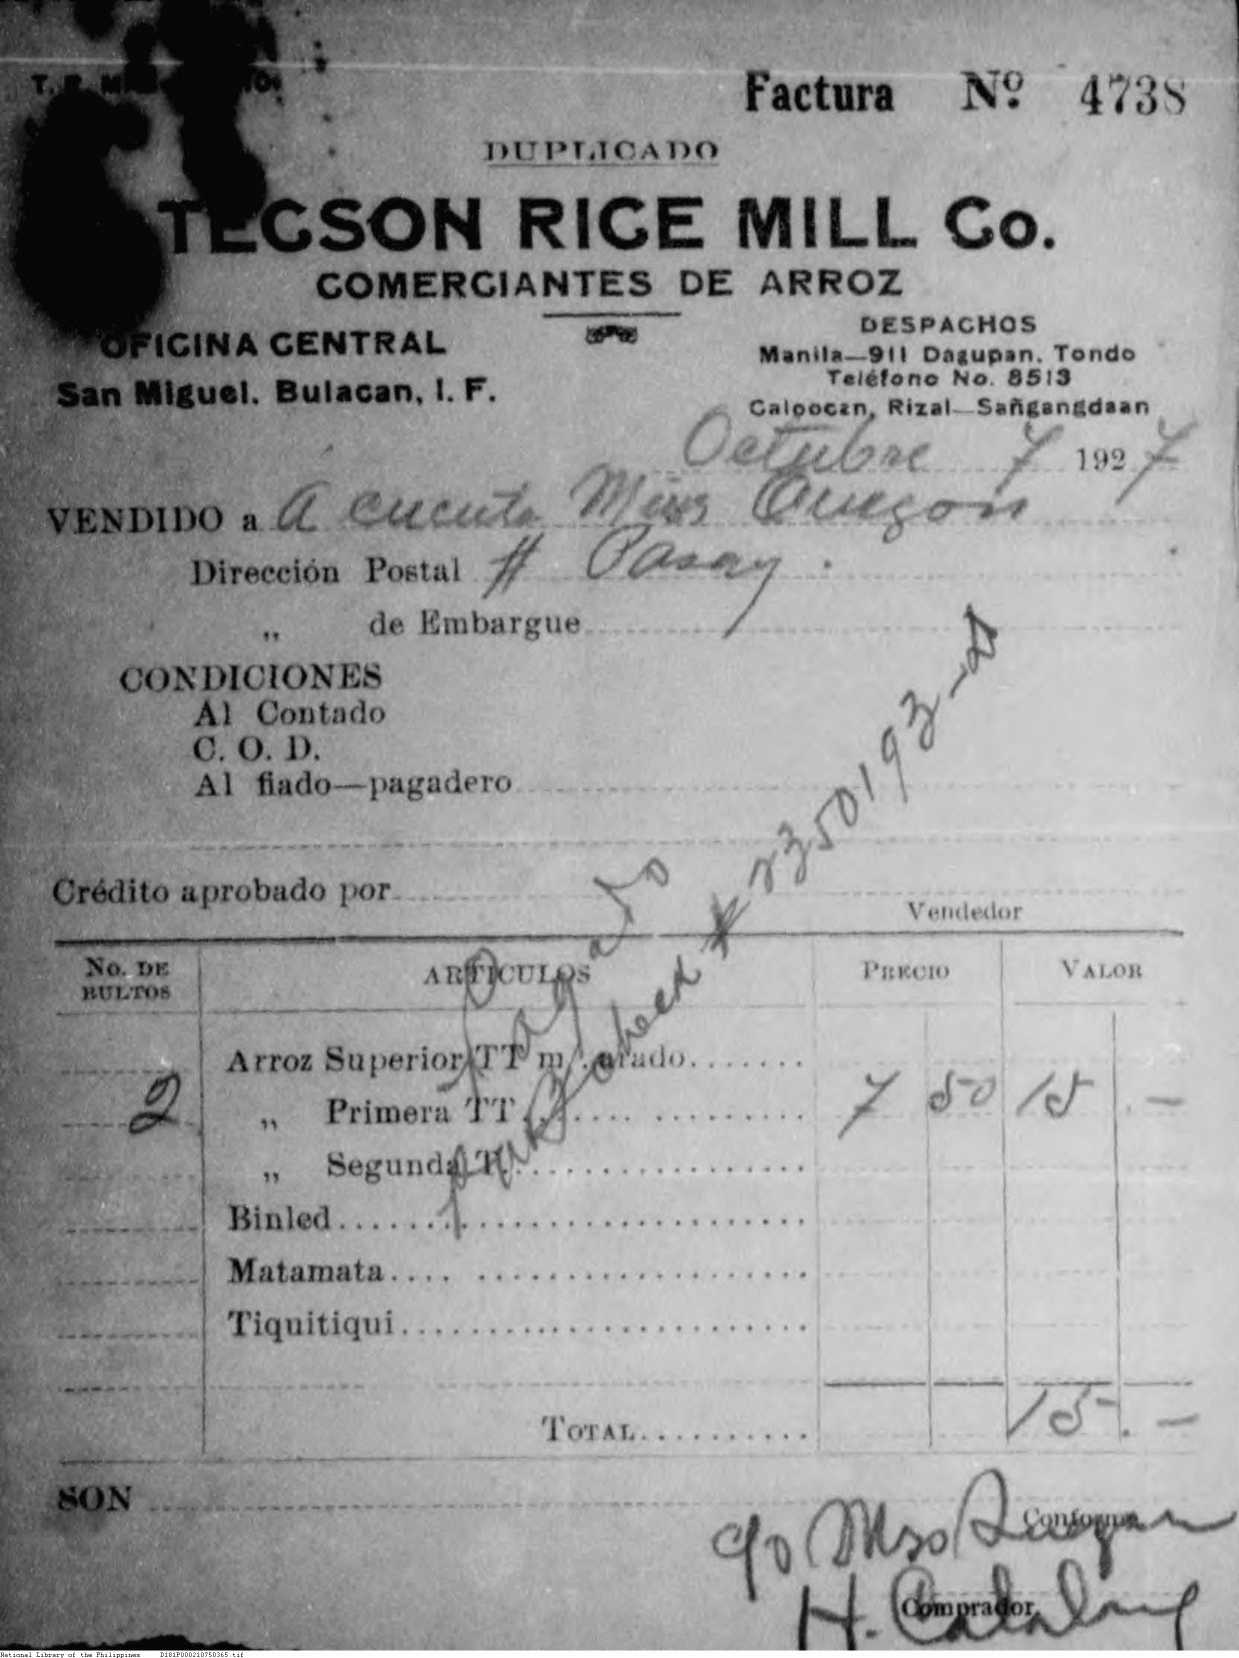 Factura Nº 4738
DUPLICADO
TECSON RICE MILL Co.
COMERCIANTES DE ARROZ
OFICINA CENTRAL
San Miguel, Bulacan, I. F.
DESPACHOS
Manila—911 Dagupan, Tondo
Teléfono No. 8513
Caloocan, Rizal—Sañgangdaan
Octubre 7 1927
VENDIDO a A cuenta Miss Quezon
Dirección Postal # Pasay.
„ de Embargue
CONDICIONES
Al Contado
C. O. D.
Al fiado—pagadero
Crédito aprobado por
Vendedor
No. DE BULTOS ARTICULOS PRECIO VALOR
Arroz Superior TT
2 „ Primera TT 7 50 15 . —
„ Segunda T
Binled
Matamata
Tiquitiqui
TOTAL 15 . —
Pagado
check # 235019
SON
Conforme
c/o Mrs Quezon
Comprador